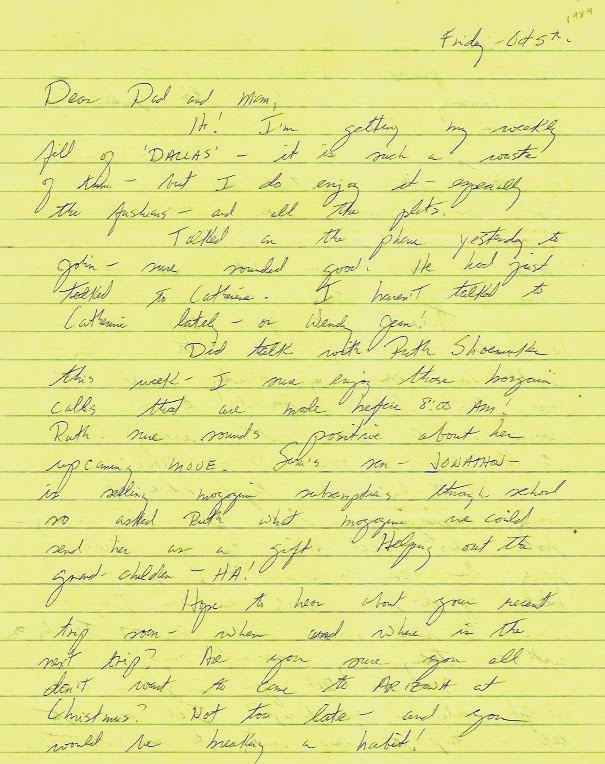 1989
Friday - Oct 5th.
Dear Dad and Mom,
Hi! I'm getting my weekly
fill of 'DALLAS' - it is such a waste
of time - but I do enjoy it - especially
the fashions - and all the plots.
Talked on the phone yesterday to
John - sure sounded good! He had just
talked to Catherine. I haven't talked to
Catherine lately - or Wendy Jean!
Did talk with Ruth Shoemaker
this week - I sure enjoy those bargain
calls that are made before 8:00 AM.
Ruth sure sounds positive about her
upcoming move. son - JONATHON -
is selling magazine subscriptions through school
so asked Ruth what magazine we could
send her as a gift. Helping out the
grand-children - HA!
Hope to hear about your recent
trip soon - when and where is the
next trip? Are you sure you all
don't want to come to ARIZONA at
Christmas? Not too late - and you
would be breaking a habit!